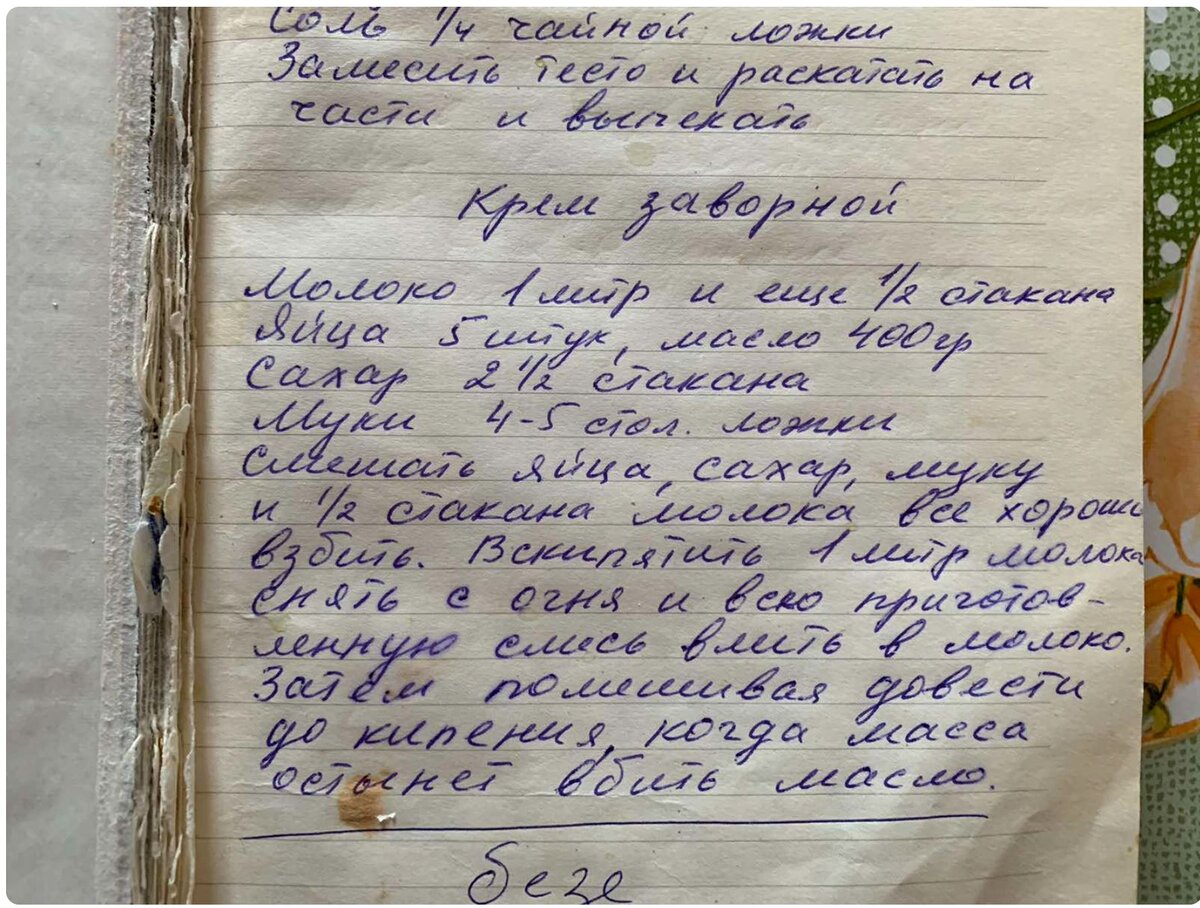 Соль 1/4 чайной ложки
Замесить тесто и раскатать на
части и выпекать
Крем заворной
Молоко 1 литр и еще 1/2 стакана
Яйца 5 штук, масло 400 гр
Сахар 2 1/2 стакана
Муки 4-5 стол. ложки
Смешать яйца, сахар, муку
и 1/2 стакана молока все хорошо
взбить. Вскипятить 1 литр молока
снять с огня и всю приготов-
ленную смесь влить в молоко.
Затем помешивая довести
до кипения, когда масса
остынет вбить масло.
безе